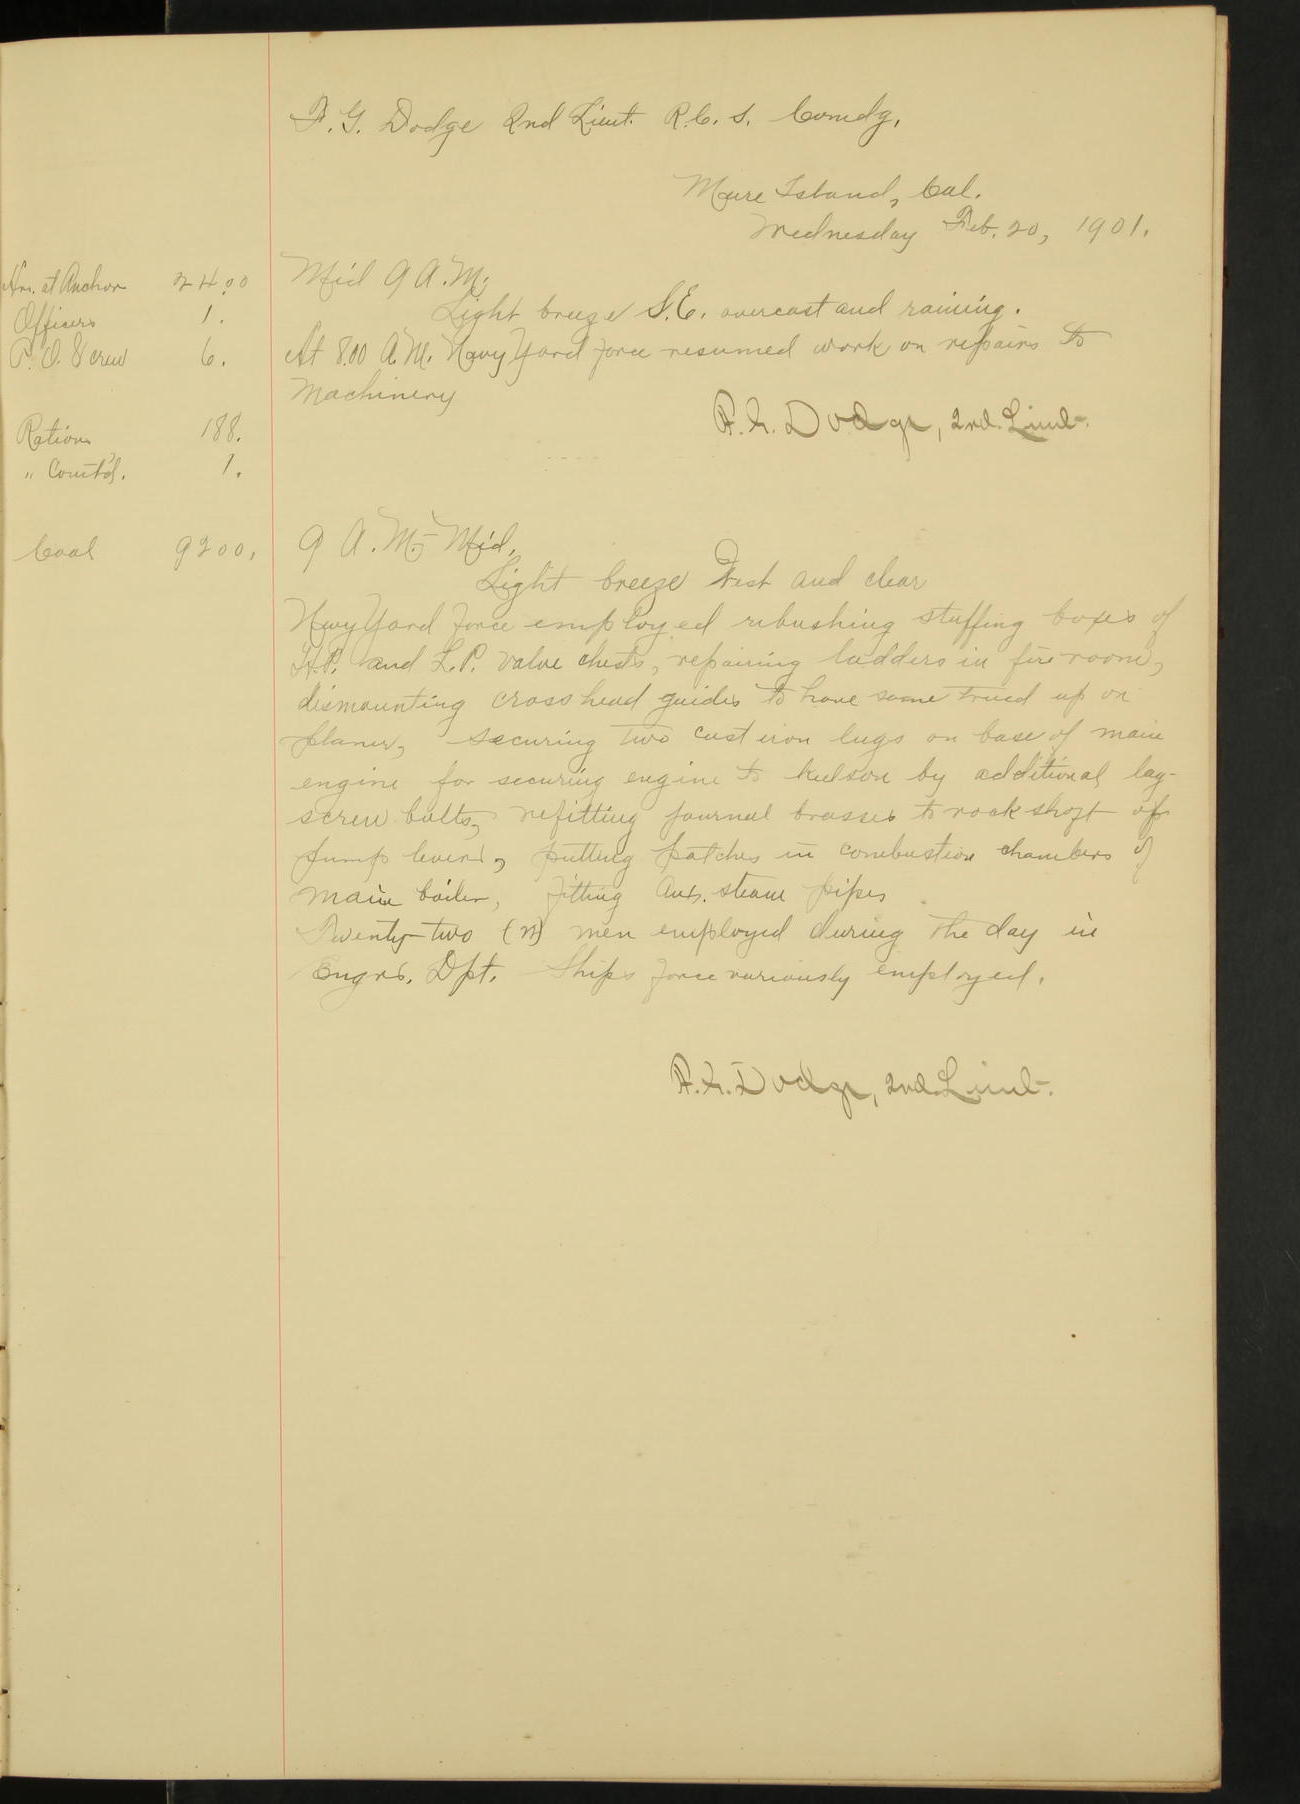 F. G. Dodge 2nd Lieut. R. C. S. Comdg.
Mare Island, Cal.
Wednesday Feb. 20, 1901.
Hrs. at Anchor 24.00
Officers 1.
P. O. & crew 6.
Rations 188.
" Comt'd. 1.
Coal 9200.
Mid 9 A.M:
Light breeze S.E. overcast and raining.
At 8.00 A.M. Navy Yard force resumed work on repairs to
Machinery
F. G. Dodge, 2nd. Lieut.
9 A.M.- Mid.
Light breeze West and clear
Navy Yard force employed rebushing stuffing boxes of
H.P. and L.P. valve chests, repairing ladders in fire room,
dismounting cross head guides to have same trued up on
planer, securing two cast iron lugs on base of main
engine for securing engine to keelson by additional lag-
screw bolts, refitting journal brasses to rock shaft of
pump levers, putting patches in combustion chambers of
main boiler, fitting aux. steam pipes
Twenty-two (22) men employed during the day in
Engrs. Dpt. Ships force variously employed.
F. G. Dodge, 2nd. Lieut.